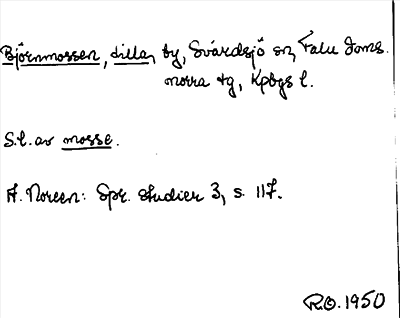 Björnmossen, lilla, by, Svärdsjö sn, Falu Doms.
norra tg, Kpbgs l.
S.l. av mosse.
A. Noreen: Spr. studier 3, s. 117.
R.O. 1950